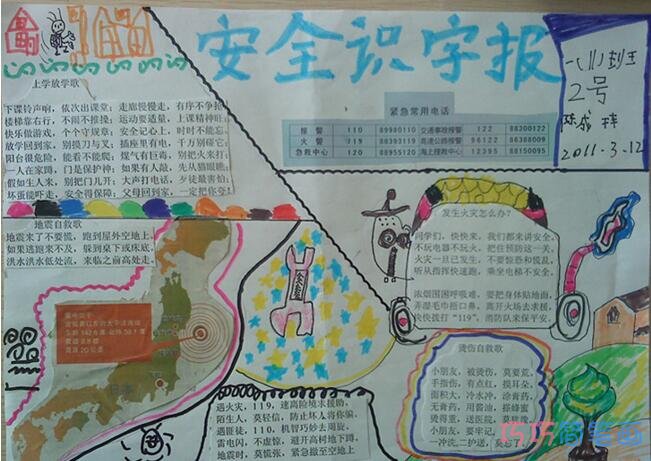 安全识字报
一(11)班
2号
2011.3.12
上学放学歌
下课铃声响，依次出课堂；走廊慢慢走，有序不争抢。
楼梯靠右行，不闹不推搡；运动要适量，上课精神旺。
快乐做游戏，个个守规章；安全记心上，时时不能忘。
放学回到家，别摸刀与叉；插座里有电，千万别碰它；
阳台很危险，能看不能爬；煤气有巨毒，别把火来打；
一人在家蹲，门是保护神；如果有人敲，先从猫眼瞧；
假如生人来，别把门儿开；大声打电话，歹徒最害怕；
坏蛋能吓走，安全得保障；父母回到家，一定把你夸！
紧急常用电话
报 警 110 88980110 交通事故报警 122 88200122
火 警 119 88393119 高速公路报警 96122 86388009
急救中心 120 88955120 海上搜救中心 12395 88150095
地震自救歌
地震来了不要慌，跑到屋外空地上。
如果逃跑来不及，躲到桌下或床底。
洪水洪水低处流，来临之前高处走。
震级 8.8级
震源 20公里
日本
安全
发生火灾怎么办？
同学们，快快来，我们都来讲安全。
不玩电器不玩火，把住预防这一关。
火灾一旦已发生，不要惊恐和慌乱，
听从指挥快速跑，乘坐电梯不安全。
浓烟围困呼吸难，要把身体贴地面，
弄湿毛巾捂口鼻，离开火场去求援，
快快拨打“119”，消防队来保平安。
烫伤自救歌
小朋友，被烫伤，莫要慌。
手指伤，有点红，摸耳朵。
面积大，冷水冲，涂膏药。
无膏药，用酱油，搽蜂蜜
烫得重，送医院，
小朋友，要牢记，
一冲洗，二护送，莫忘了
遇火灾，119，速离险境求援助。
陌生人，莫轻信，防止坏人将你骗。
遇匪徒，110，机智巧妙去周旋。
雷电闪，不虚惊，避开高树地下蹲。
地震时，莫慌张，紧急撤至空地上
巧巧简笔画